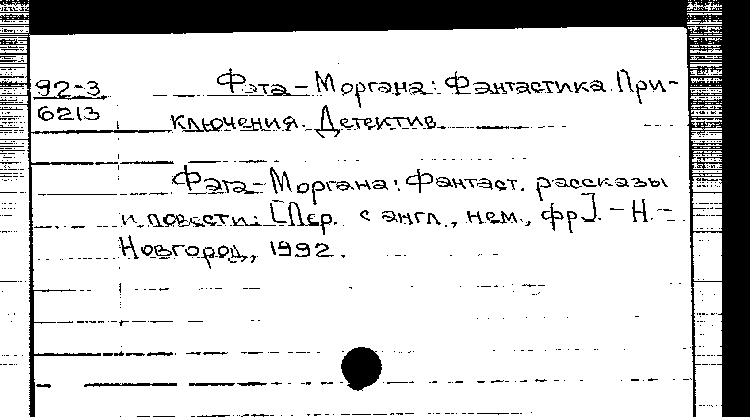 92-3
6213
Фата-Моргана: Фантастика. При-
ключения. Детектив.
Фата-Моргана: Фантаст. рассказы
и повести: [Пер. с англ., нем., фр]. - Н.-
Новгород, 1992.